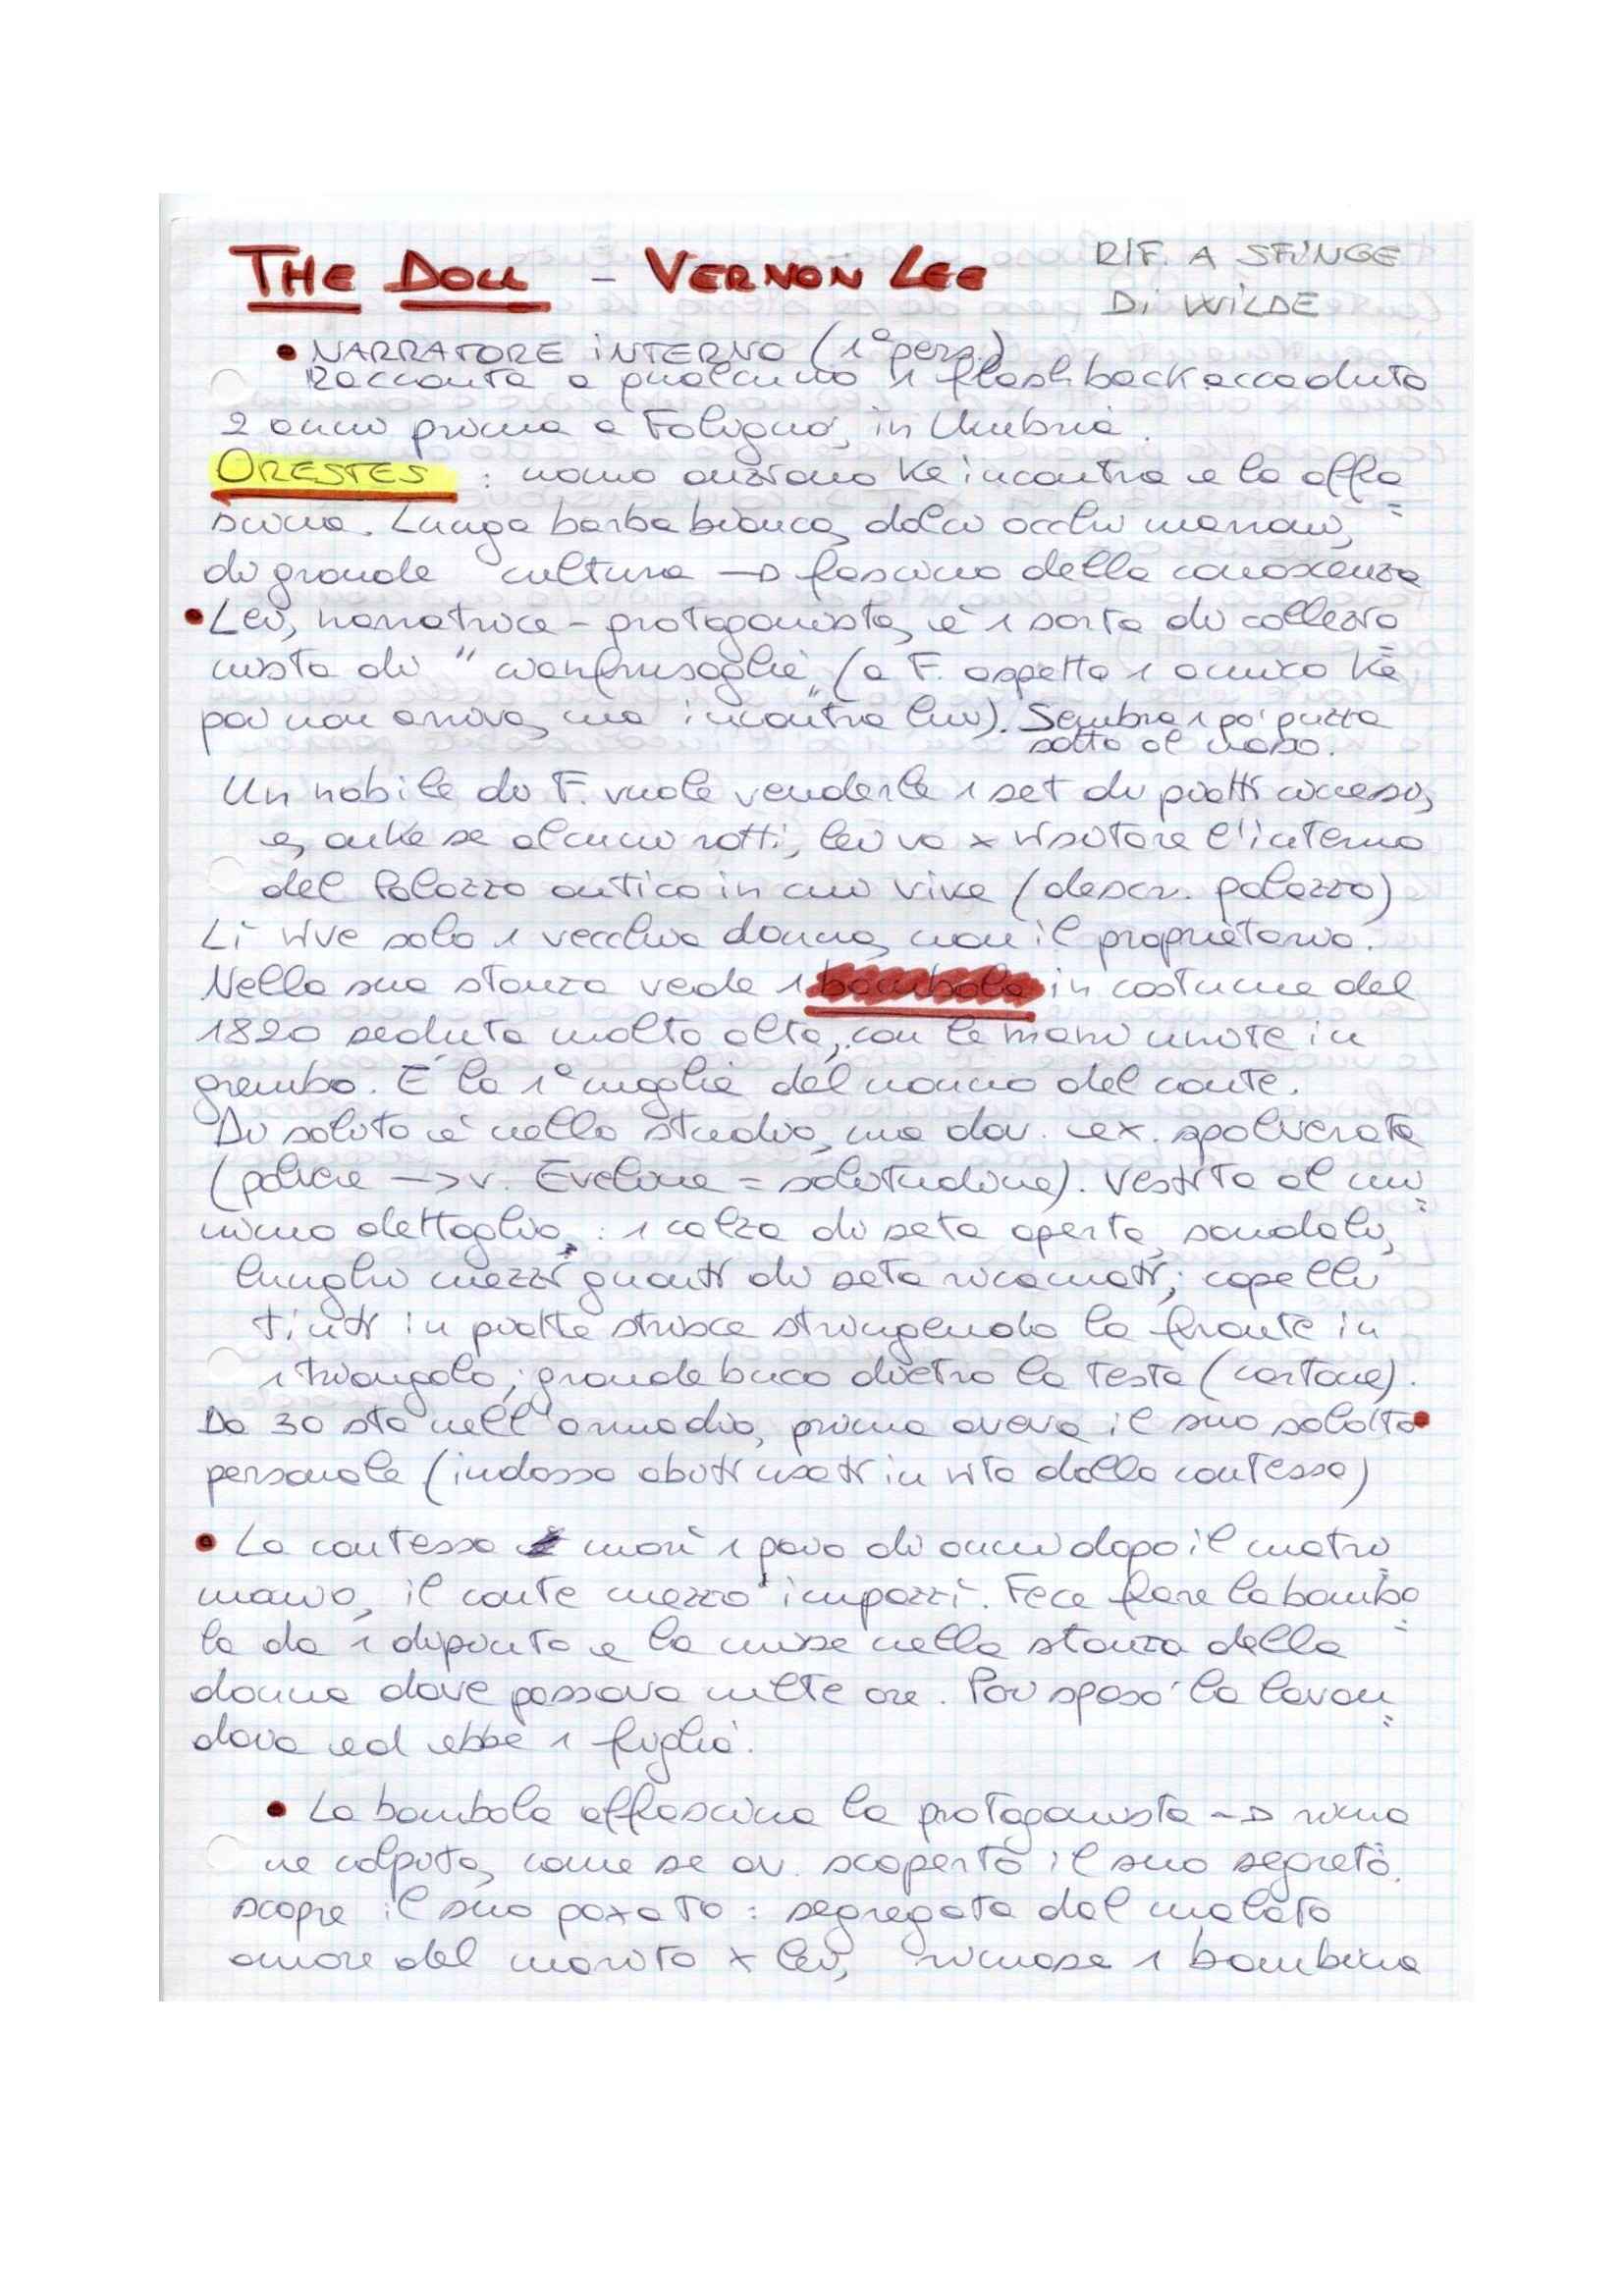 THE DOLL - VERNON LEE
RIF. A SFINGE
Di WILDE
• NARRATORE iNTERNO (1° pers.)
Racconta a qualcuno 1 flashback accaduto
2 anni prima a Foligno, in Umbria.
ORESTES : uomo anziano ke incontra e la affa=
scina. Lunga barba bianca, dolci occhi marroni,
di grande cultura → fascino della conoscenza
• Lei, narratrice - protagonista, è 1 sorta di collezio=
nista di "cianfrusaglie" (a F. aspetta 1 amico ke
poi non arriva, ma incontra lui). Sembra 1 po' puzza
sotto al naso.
Un nobile di F. vuole venderle 1 set di piatti cinesi,
e, anke se alcuni rotti, lei va x visitare l'interno
del Palazzo antico in cui vive (descr. palazzo)
Lì vive solo 1 vecchia donna, non il proprietario.
Nella sua stanza vede 1 bambola in costume del
1820 seduta molto alta, con le mani unite in
grembo. E' la 1° moglie del nonno del conte.
Di solito è nello studio, ma dov. ex. spolverata
(polvere -> v. Eveline = solitudine). Vestita al mi=
nimo dettaglio : 1 calza di seta aperta, sandali,
lunghi mezzi guanti di seta ricamati; capelli
tinti in piatte strisce stringendo la fronte in
1 triangolo; grande buco dietro la testa (cartone).
Da 30 sta nell'armadio, prima aveva il suo salotto
personale (indossa abiti usati in vita dalla contessa)
• La contessa morì 1 paio di anni dopo il matri=
monio, il conte mezzo impazzì. Fece fare la bambo=
la da 1 dipinto e la mise nella stanza della
donna dove passava molte ore. Poi sposò la lavan=
daia ed ebbe 1 figlia.
• La bambola affascina la protagonista → rima=
ne colpita, come se av. scoperto il suo segreto.
scopre il suo paxato : segregata dal malato
amore del marito x lei, rimase 1 bambina